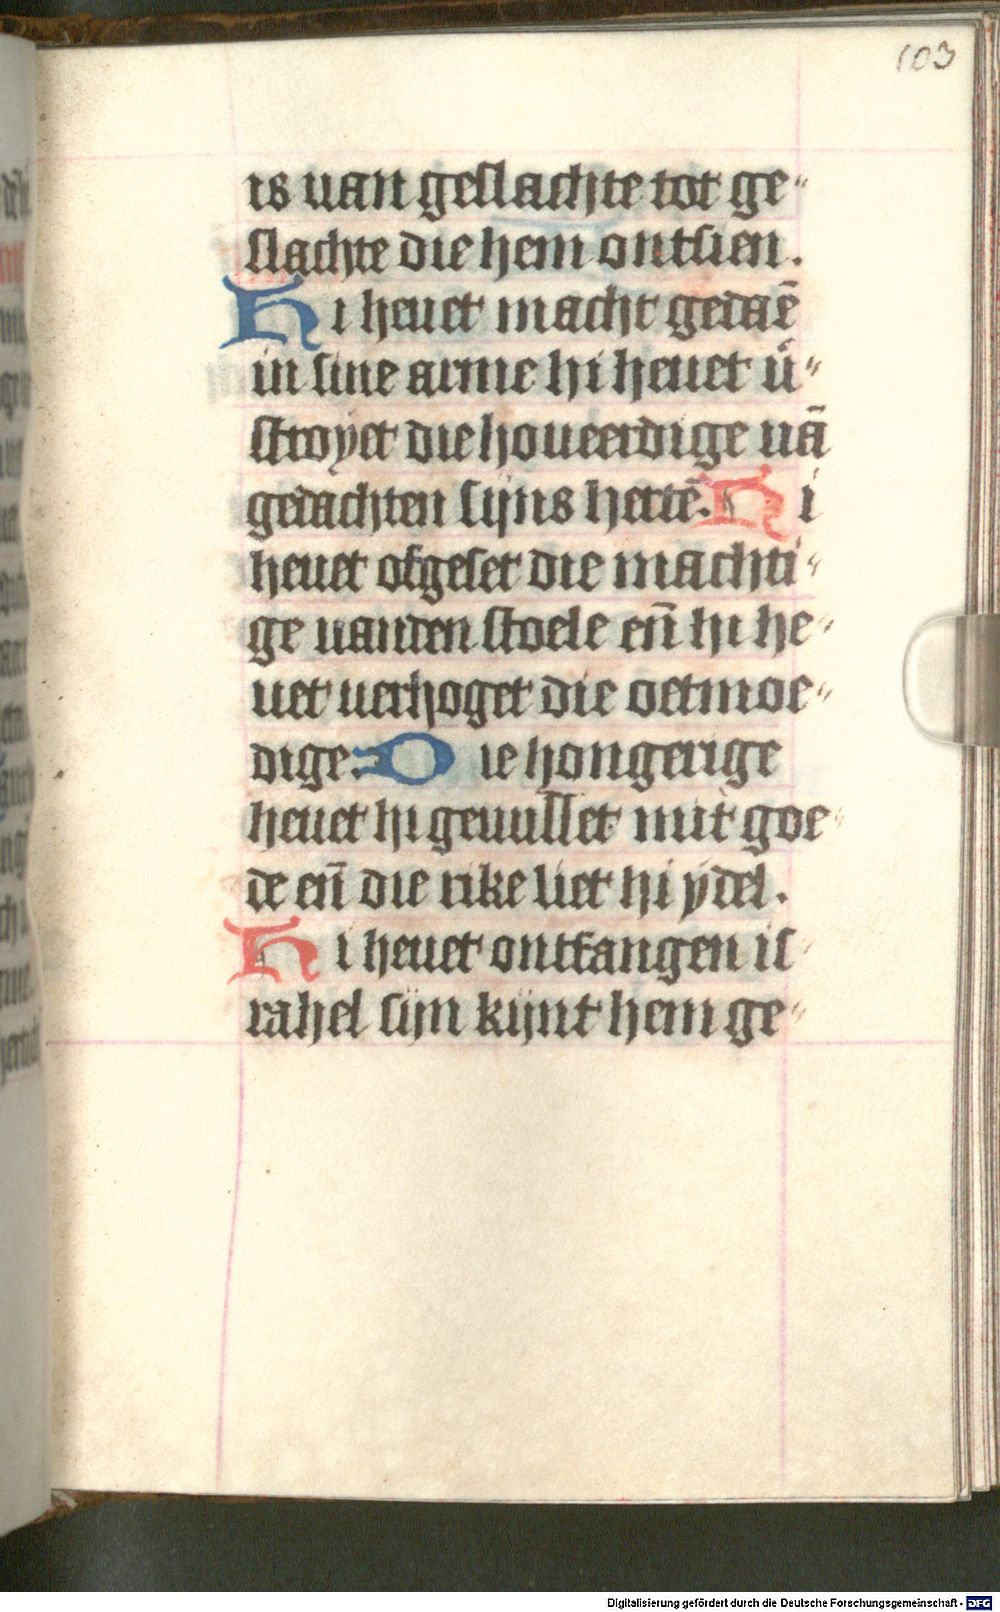 103
is uan geslachte tot ge"
slachte die hem ontsien.
Hi heuet macht gedaē
in sine arme hi heuet v̄"
stroyet die houeerdige uā
gedachten sijns hertē. Hi
heuet ofgeset die machti"
ge uanden stoele en̄ hi he"
uet uerhoget die oetmoe"
dige. Die hongerige
heuet hi geuullet mit goe"
de en̄ die rike liet hi ydel.
Hi heuet ontfangen is"
rahel sijn kijnt hem ge"
Digitalisierung gefördert durch die Deutsche Forschungsgemeinschaft - DFG